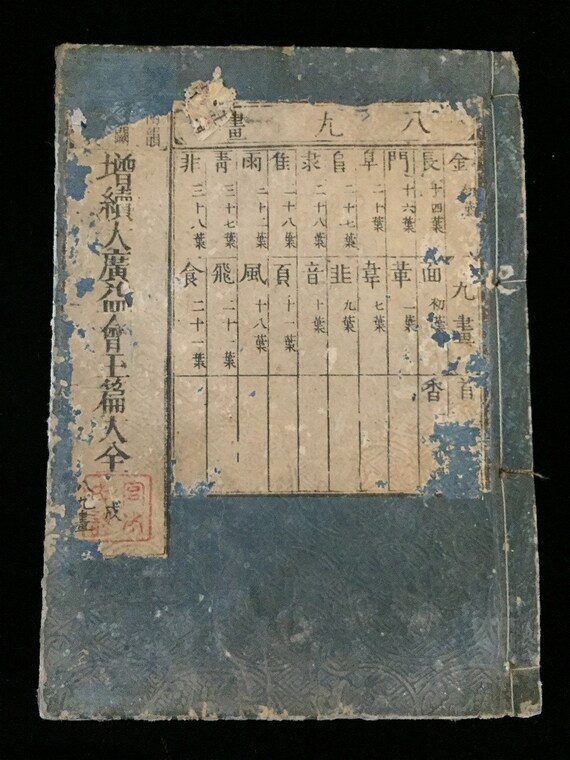 八九畫
金 九畫 首
長 十四葉 面 初葉 香
門 十六葉 革 一葉
阜 二十葉 韋 七葉
二十七葉 韭 九葉
隶 二十八葉 音 十葉
隹 二十八葉 頁 十一葉
雨 風 十八葉
靑 三十七葉 飛 二十一葉
非 三十八葉 食 二十一葉
增續大廣益會玉篇大全
戌
八九畫